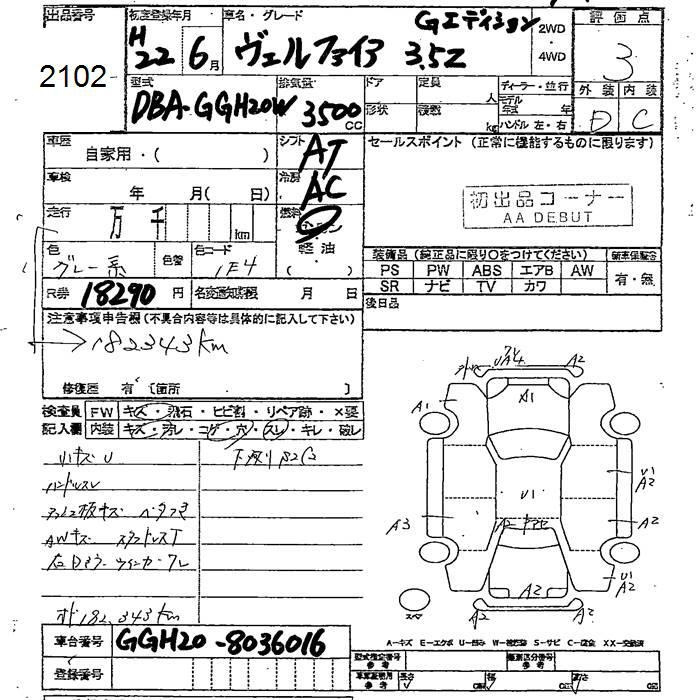 出品番号 初度登録年月 車名・グレード Gエディション 2WD 評価点
2102 H22 6月 ヴェルファイア 3.5Z ・4WD 3
型式 排気量 ドア 定員 ディーラー・並行 外装 内装
DBA-GGH20W 3500CC 形状 人 モデル 年式 年
kg ハンドル 左・右 D C
車歴 シフト セールスポイント (正常に機能するものに限ります)
自家用・( ) AT
車検 冷房
年 月( 日) AC 初出品コーナー
AA DEBUT
走行 万 千 km 燃料
色 色替 色コード 軽油 装備品 (純正品に限り○をつけてください) 新車保証書
グレー系 1E4 ( ) PS PW ABS エアB AW 有・無
SR ナビ TV カワ
R券 18290円 名変通知期限 月 日 後日品
注意事項申告欄 (不具合内容等は具体的に記入して下さい)
182343km
修復歴 有 〔箇所 〕
検査員 FW キズ・飛石・ヒビ割・リペア跡・×要
記入欄 内装 キズ・汚レ・コゲ・穴・スレ・キレ・破レ
小キズU
ハンドルスレ
AWキズ
右Dミラーウインカーワレ
182,343km
A2
A1
A1
U1
A2
U1
A3
A2
U1
A2
A2
A2
A2
スペア
A-キズ E-エクボ U-凹み W-補修跡 S-サビ C-腐食 XX-交換済
車台番号 GGH20-8036016
登録番号
型式指定番号 類別区分番号
参考 参考
長さ cm 幅 cm 高さ cm